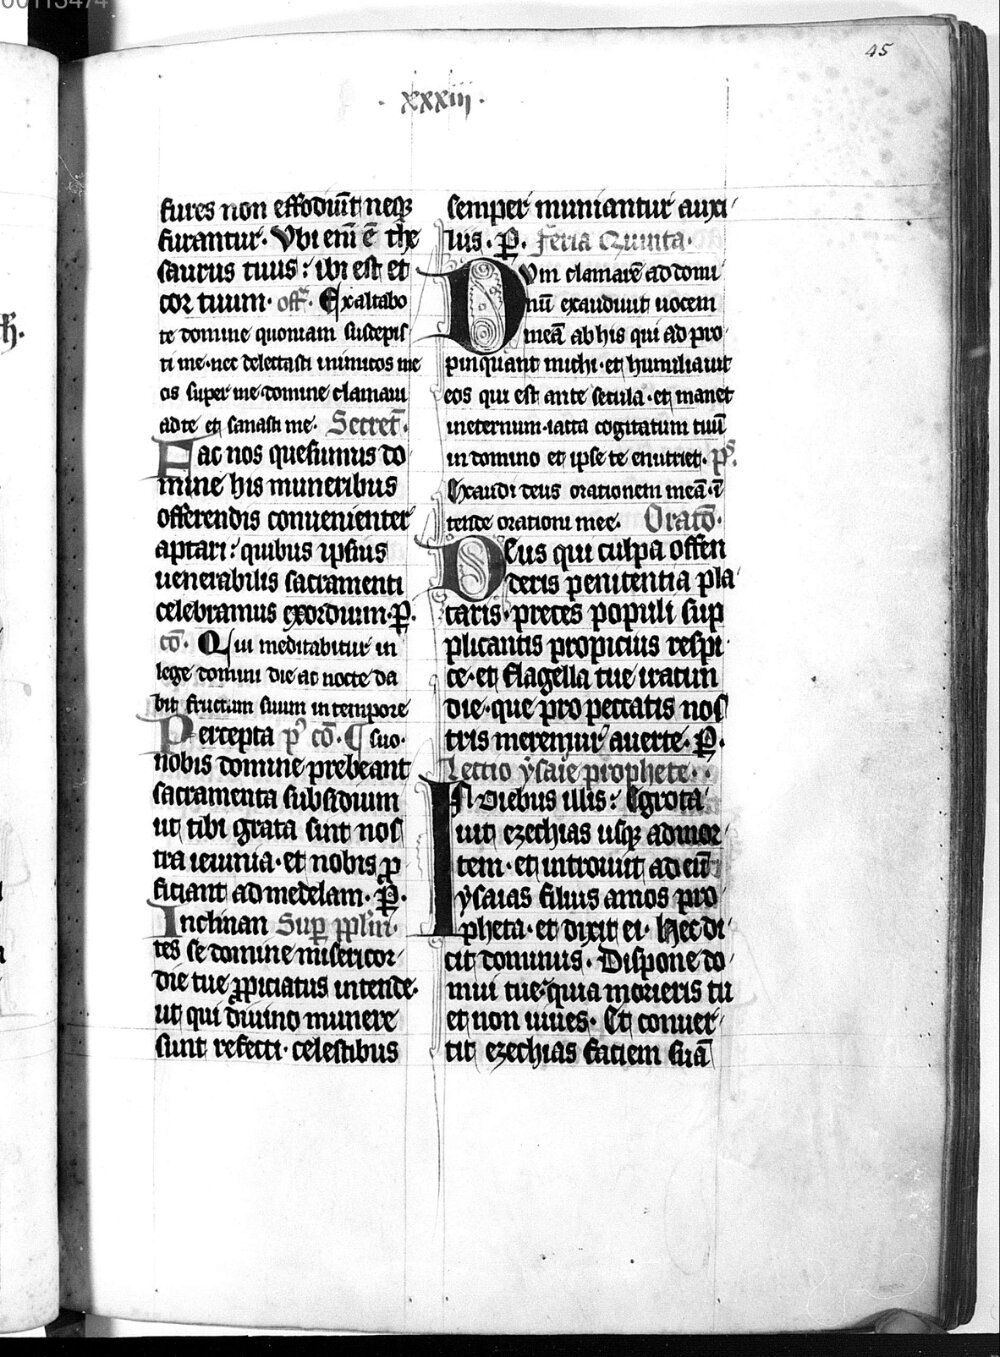 45
· xxxiii ·
fures non effodiūt neqꝫ
furantur· Vbi eni ē the
saurus tuus : ibi est et
cor tuum· off̄. Exaltabo
te domine quoniam suscepis
ti me·nec delectasti inimicos me
os super me·domine clamaui
adte et sanasti me· Secret̄·
Fac nos quesumus do
mine his muneribus
offerendis conuenienter
aptari : quibus ipsius
uenerabilis sacramenti
celebramus exordium·P.
cō· Qui meditabitur in
lege domini die ac nocte da
bit fructum suum in tempore
Percepta p9 cō· ¶ suo·
nobis domine prebeant
sacramenta subsidium
ut tibi grata sint nos
tra ieiunia·et nobis ꝓ
ficiant ad medelam· P.
Inclinan Suꝑ pplm̄·
tes se domine misericor
die tue ꝓpiciatus intende·
ut qui diuino munere
sunt refecti· celestibus
semper muniantur auxi
liis· P. Feria Quinta·
Dvm clamarē ad domi
nū exaudiuit uocem
meā ab his qui ad pro
pinquant michi·et humiliauit
eos qui est ante secula·et manet
ineternum·iacta cogitatum tuū
in domino et ipse te enutriet· p̄s.
Exaudi deus orationem meā·ī
tende orationi mee· Oratō·
Deus qui culpa offen
deris penitentia pla
caris·preces populi sup
plicantis propicius respi
ce·et flagella tue iracun
die·que pro peccatis nos
tris meremur auerte· P.
Lectio ysaie prophete··
IN Diebus illis : Egrota
uit ezechias usqꝫ ad mor
tem·et introiuit ad eū
ysaias filius amos pro
pheta·et dixit ei· Hec di
cit dominus· Dispone do
mui tue·quia morieris tu
et non uiues· Et conuer
tit ezechias faciem suā